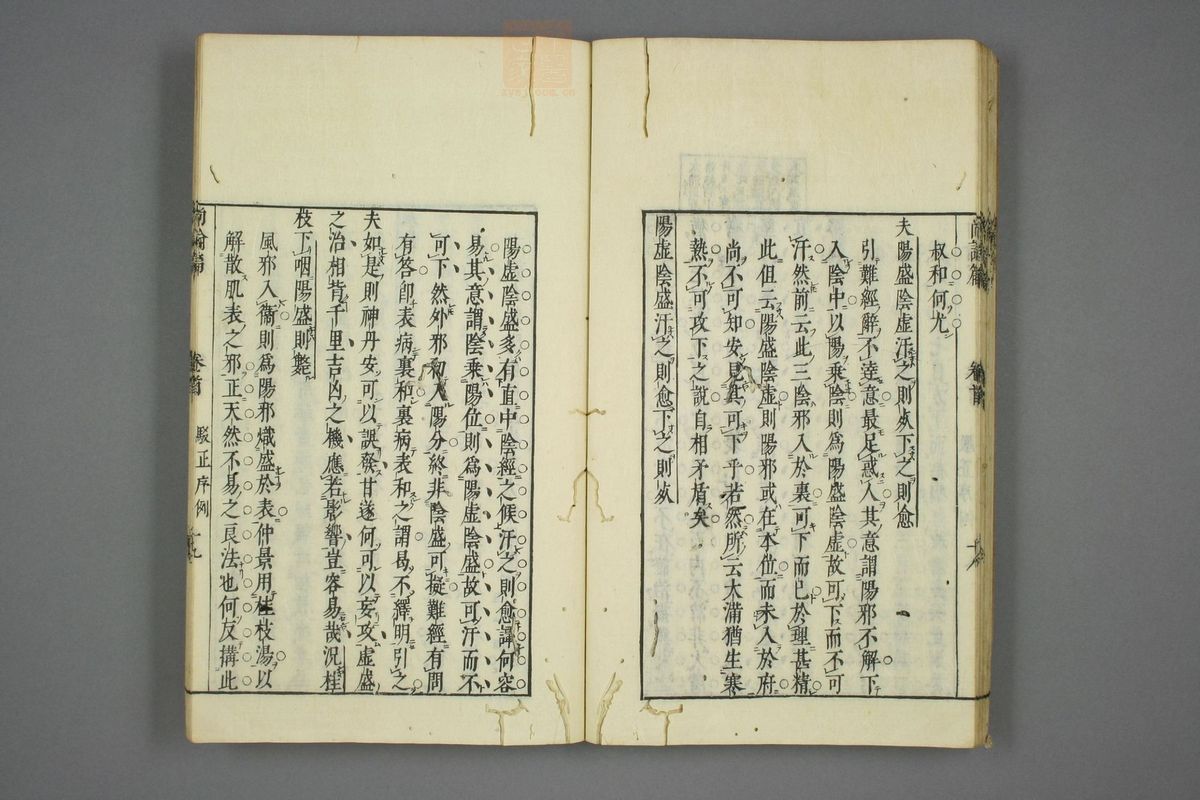 叔和何尤
夫陽盛陰虛汗之則死下之則愈
引難經辭不達意最足惑人其意謂陽邪不解下
入陰中以陽乘陰則爲陽盛陰虛故可下而不可
汗然前云此三陰邪入於裏可下而已於理甚精
此但云陽盛陰虛則陽邪或在本位而未入於府
尚不可知安見其可下乎若然所云大滿猶生寒
熱不可攻下之說自相矛盾矣
陽虛陰盛汗之則愈下之則死
陽虛陰盛多有直中陰經之候汗之則愈何容
易其意謂陰乘陽位則爲陽虛陰盛故可汗而不
可下然外邪初入陽分終非陰盛可擬難經有問
有答卽表病裏和裏病表和之謂曷不繹明引之
夫如是則神丹安可以誤發甘遂何可以妄攻虛盛
之治相背千里吉凶之機應若影響豈容易哉況桂
枝下咽陽盛則斃
風邪入衞則爲陽邪熾盛於表仲景用桂枝湯以
解散肌表之邪正天然不易之良法也何反搆此
尚論篇
卷首
駁正序例
十九